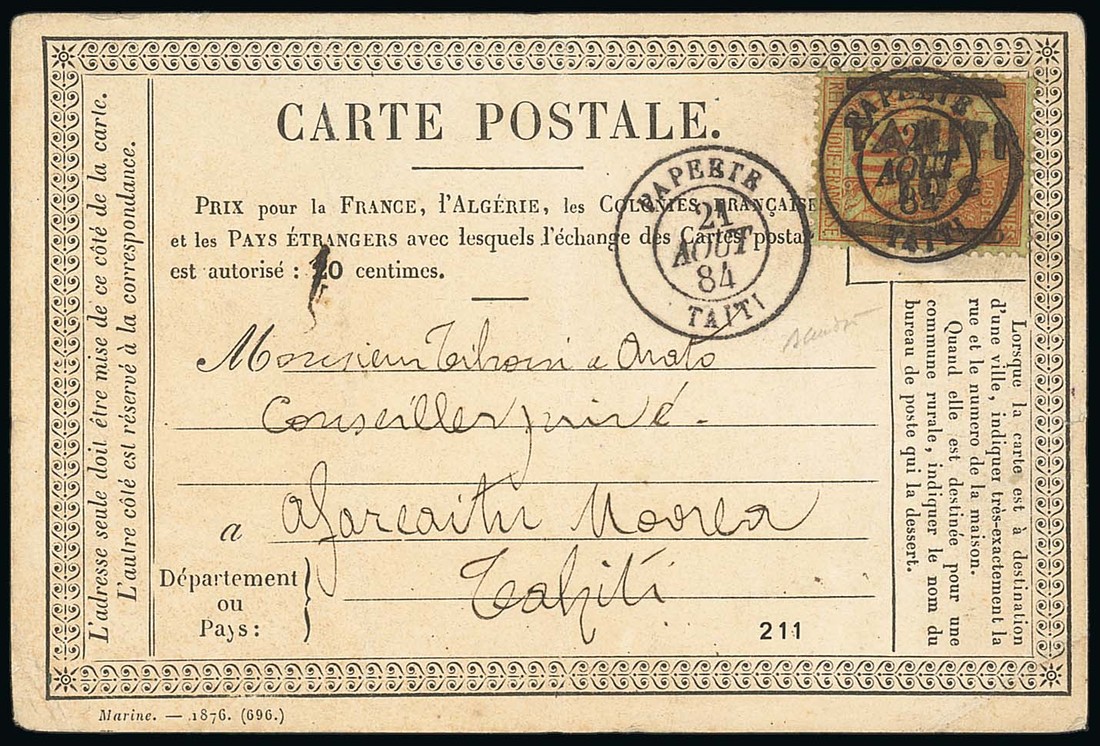 CARTE POSTALE.
PRIX pour la FRANCE, l'ALGÉRIE, les COLONIES FRANÇAISES
et les PAYS ÉTRANGERS avec lesquels l'échange des Cartes postal
est autorisé : 10 centimes.
PAPEETE
21
AOUT
84
TAITI
PAPEETE
TAHITI
21
AOUT
84
TAITI
L'adresse seule doit être mise de ce côté de la carte.
L'autre côté est réservé à la correspondance.
Monsieur
Conseiller privé.
a Afareaitu Moorea
Département
ou
Pays :
Tahiti
Lorsque la carte est à destination
d'une ville, indiquer très-exactement la
rue et le numéro de la maison.
Quand elle est destinée pour une
commune rurale, indiquer le nom du
bureau de poste qui la dessert.
211
Marine. — 1876. (696.)